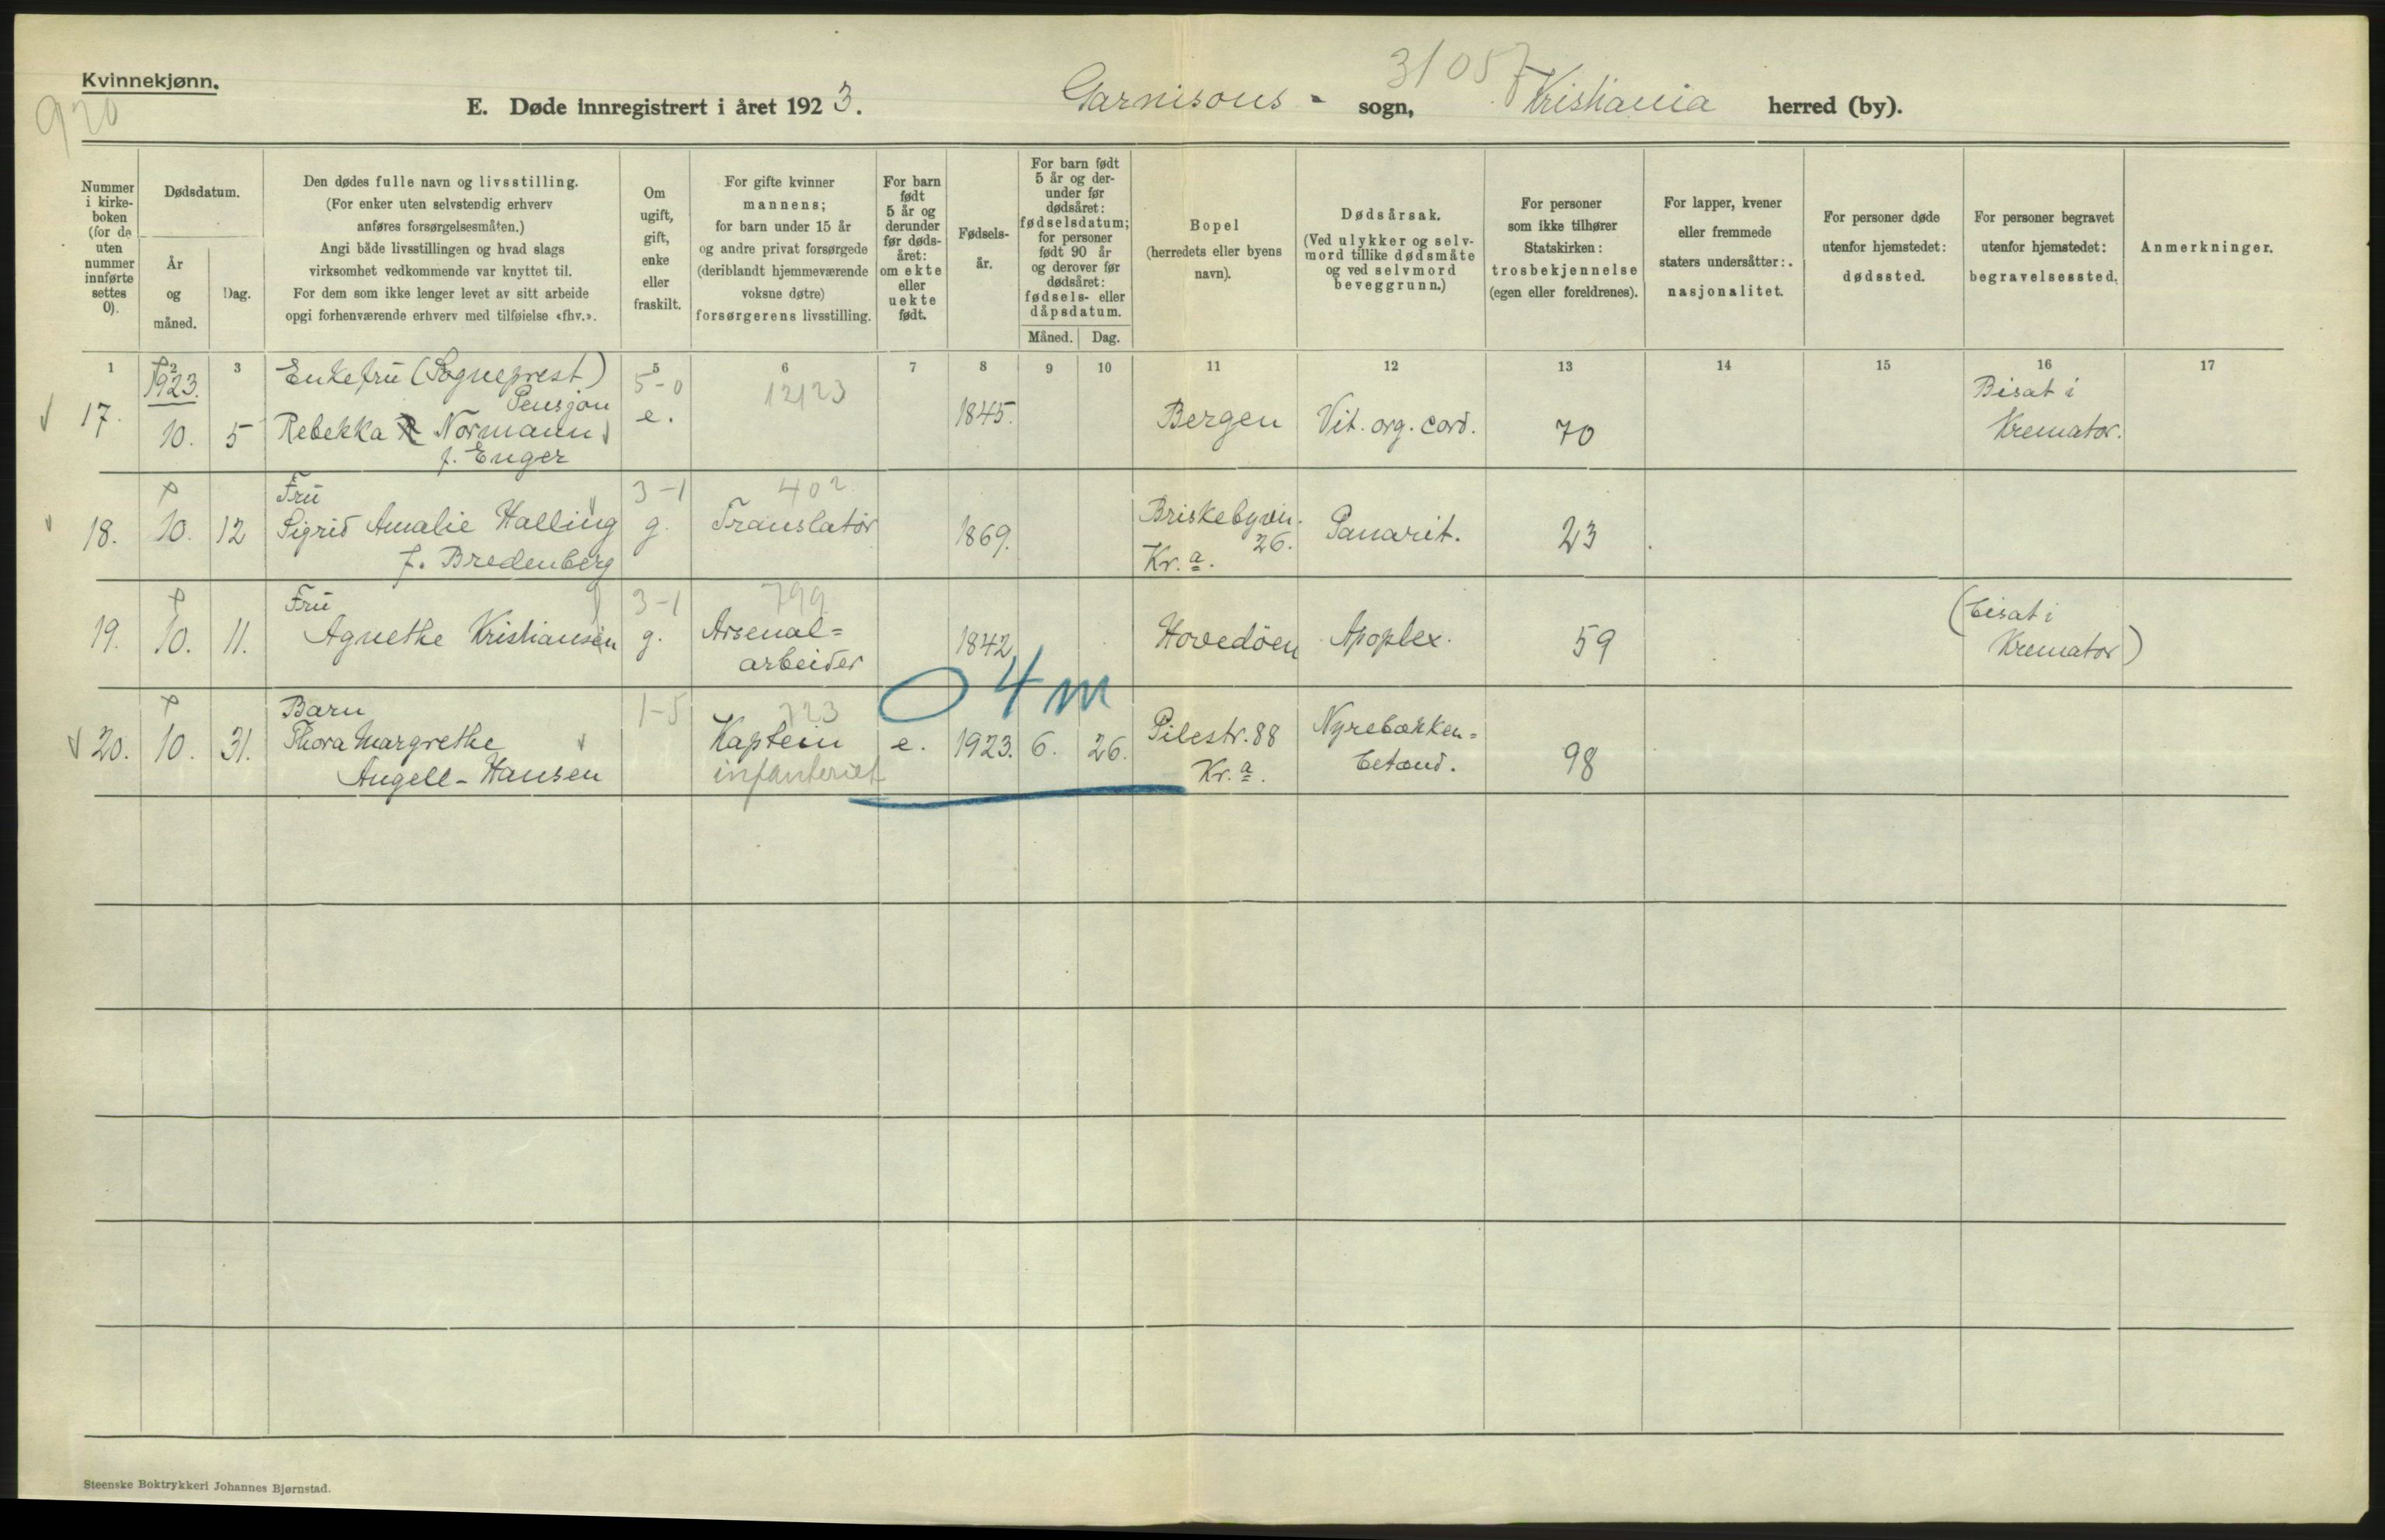 Kvinnekjønn.
920
31057
E. Døde innregistrert i året 1923. Garnisons - sogn, Kristiania herred (by).
Nummer
i kirke-
boken
(for de
uten
nummer
innførte
settes
0).
Dødsdatum.
År
og
måned.
Dag.
Den dødes fulle navn og livsstilling.
(For enker uten selvstendig erhverv
anføres forsørgelsesmåten.)
Angi både livsstillingen og hvad slags
virksomhet vedkommende var knyttet til.
For dem som ikke lenger levet av sitt arbeide
opgi forhenværende erhverv med tilføielse «fhv.».
Om
ugift,
gift,
enke
eller
fraskilt.
For gifte kvinner
mannens;
for barn under 15 år
og andre privat forsørgede
(deriblandt hjemmeværende
voksne døtre)
forsørgerens livsstilling.
For barn
født
5 år og
derunder
før døds-
året:
om ekte
eller
uekte
født.
Fødsels-
år.
For barn født
5 år og der-
under før
dødsåret:
fødselsdatum;
for personer
født 90 år
og derover før
dødsåret:
fødsels- eller
dåpsdatum.
Måned. Dag.
Bopel
(herredets eller byens
navn).
Dødsårsak.
(Ved ulykker og selv-
mord tillike dødsmåte
og ved selvmord
beveggrunn.)
For personer
som ikke tilhører
Statskirken:
trosbekjennelse
(egen eller foreldrenes).
For lapper, kvener
eller fremmede
staters undersåtter:
nasjonalitet.
For personer døde
utenfor hjemstedet:
dødssted.
For personer begravet
utenfor hjemstedet:
begravelsessted.
Anmerkninger.
1 2 3 5 6 7 8 9 10 11 12 13 14 15 16 17
1923.
Enkefru (Sogneprest)
Pensjon
5-0
12123
Bisat i
17. 10. 5 Rebekka Normann e. 1845. Bergen Vit. org. cord. 70 Kremator.
f. Enger
Fru
3-1
402
18. 10. 12 Sigrid Amalie Halling g. Translatör 1869. Briskebyvn. 26. Panarit. 23
f. Bredenberg
Kr.a.
Fru
3-1
799
(bisat i
19. 10. 11. Agnethe Kristiansen g. Arsenal= 1842 Hovedöen Apoplex. 59 Kremator)
arbeider
04 m
Barn
1-5
723
20. 10. 31. Thora Margrethe Kaptein e. 1923. 6. 26. Pilestr. 88 Nyrebækken= 98
Angell-Hansen
infanteriet
Kr.a.
betænd.
Steenske Boktrykkeri Johannes Bjørnstad.